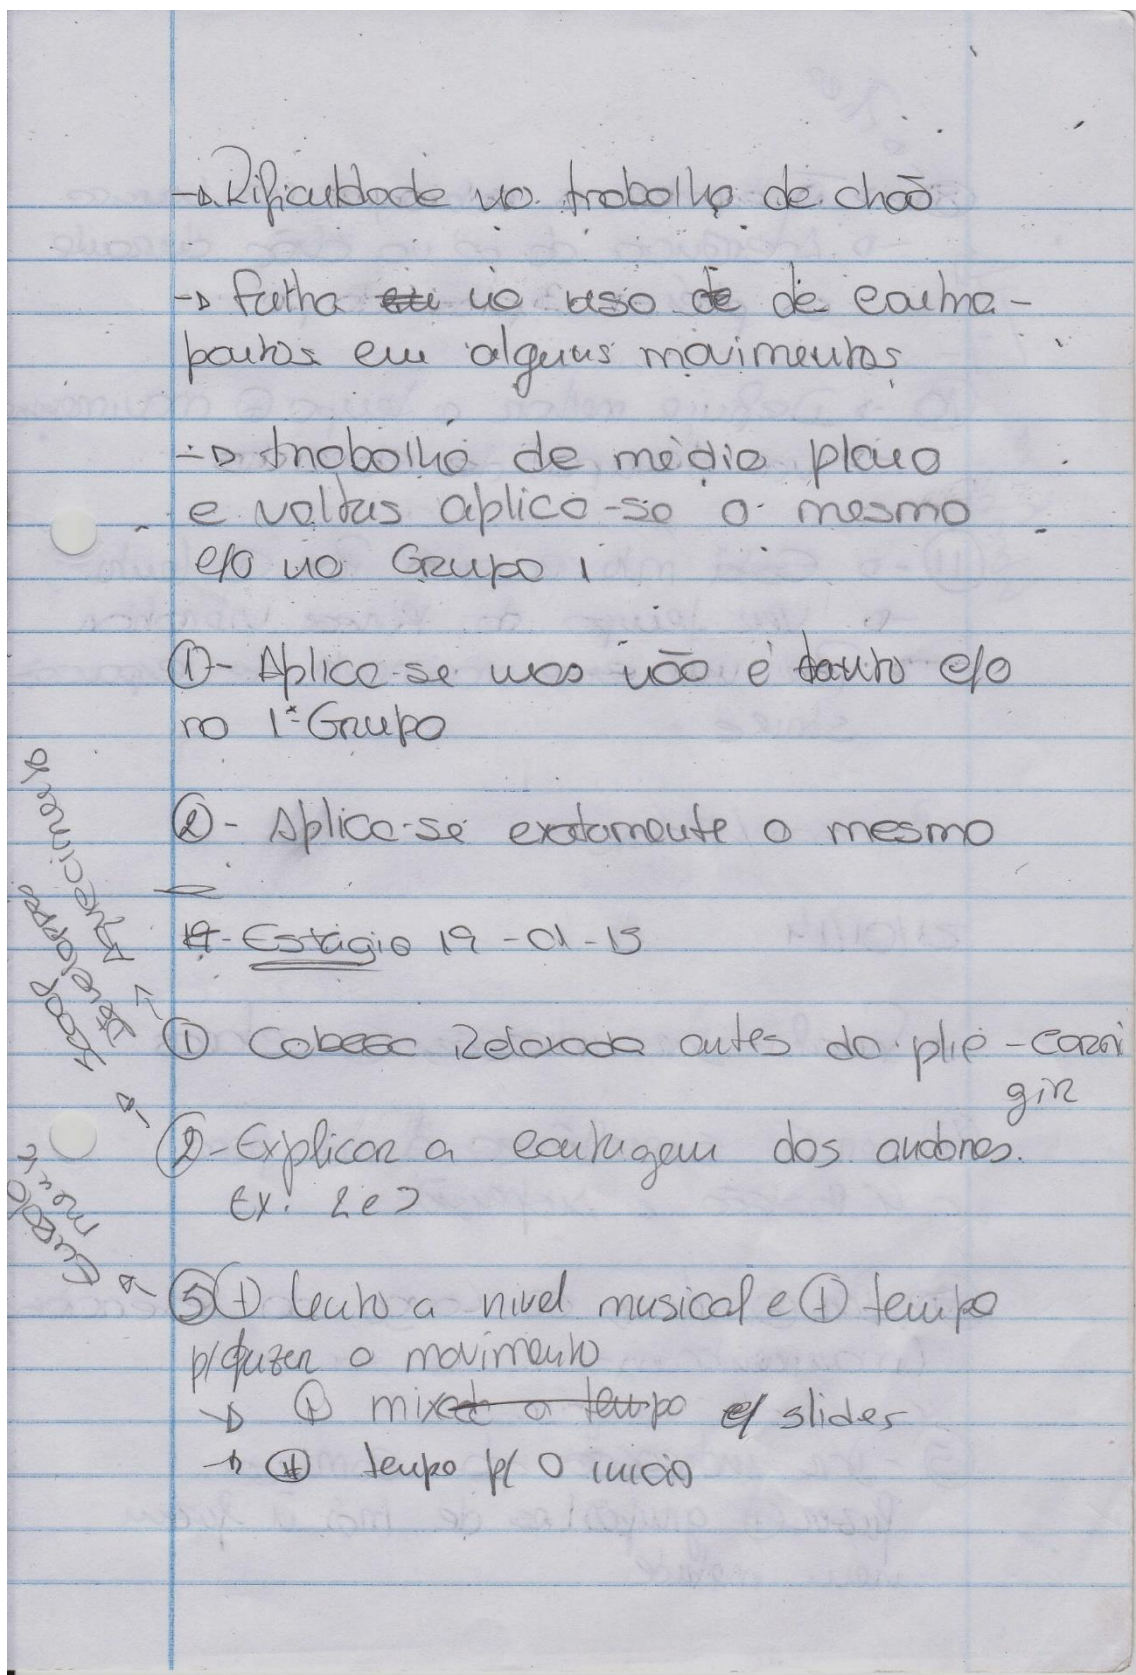 → Dificuldade no trabalho de chão
→ falha no uso de contra-
pontos em alguns movimentos
→ trabalho de médio plano
e voltas aplica-se o mesmo
c/o no Grupo 1
① - Aplica-se mas não é tanto c/o
no 1º Grupo
② - Aplica-se exatamente o mesmo
Estágio 19-01-15
① Cabeça Relaxada antes do plié - corri
gir
② - Explicar a contagem dos andares.
Ex: 2 e 2
⑤ ⊕ lento a nível musical e ⊕ tempo
p/ fazer o movimento
→ ⊕ c/ slides
→ ⊕ tempo p/ o início
Aquecimento
developpé